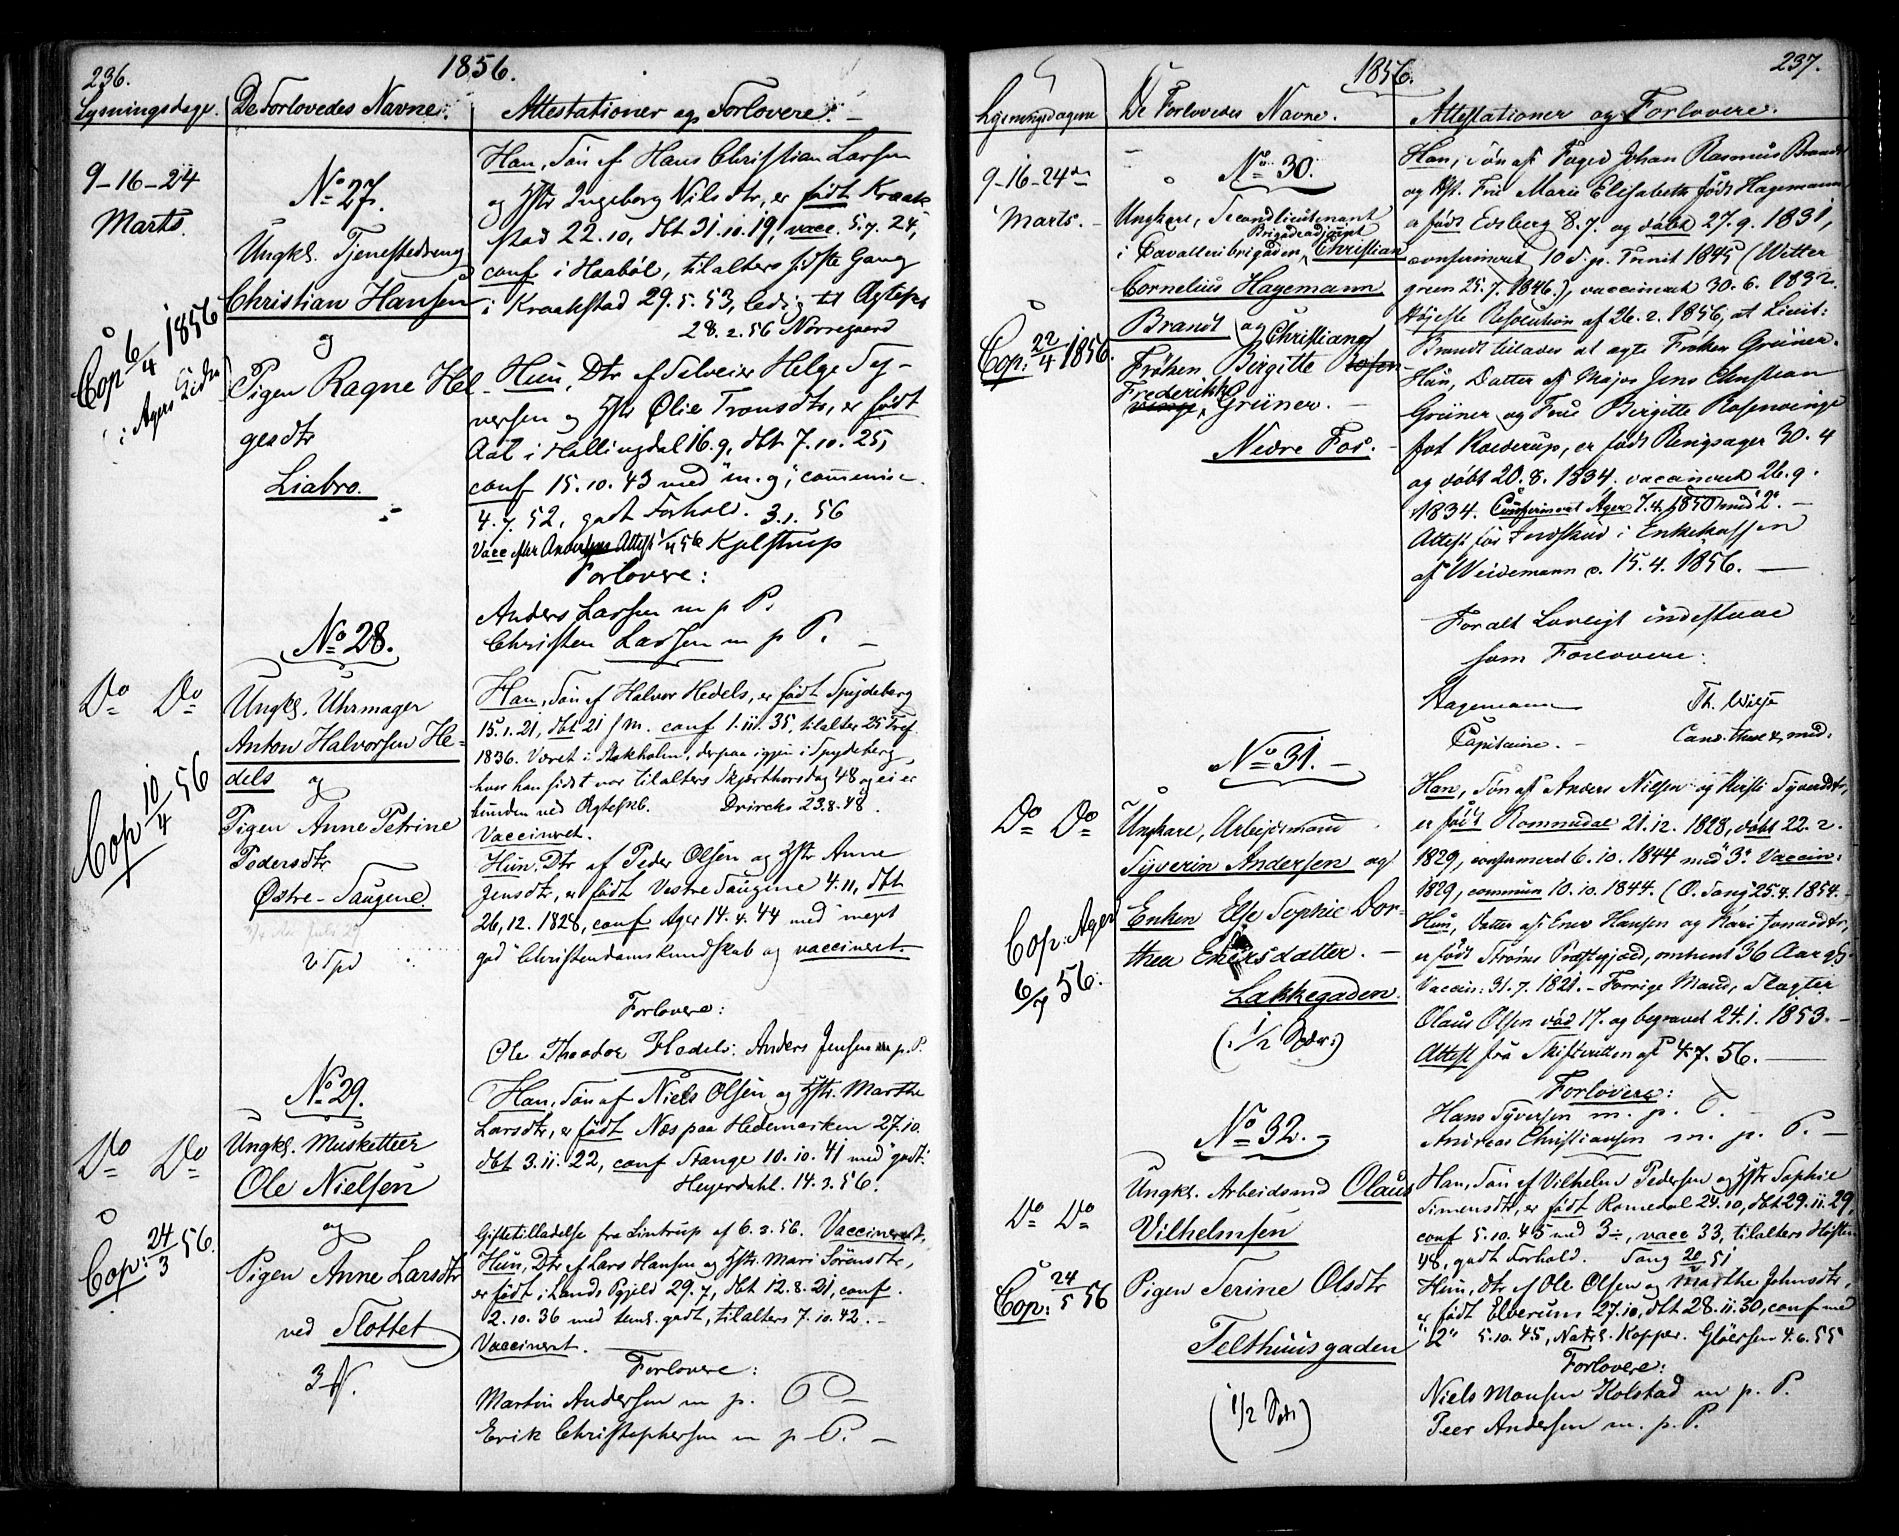 236.
1856.
Lysningsdage.
De Forlovedes Navne:
Attestationer og Forlovere:
9-16-24
Marts.
No 27.
Ungkl. Tjenestedreng
Christian Hansen
og
Pigen Ragne Hel-
gesdtr
Liabro.
Cop 6/4 1856
i Agers
Han, Søn af Hans Christian Larsen
og Hstr Ingeborg Nilsdtr, er født Kraak
stad 22.10, dbt 31.10.19, vacc. 5.7.24,
conf i Haabøl, tilalters sidste Gang
i Kraakstad 29.5.53, ledig til Ægtesk
28.2.56 Nørregaard
Hun, Dtr af Selveier Helge Sy-
versen og Hstr Olie Tronsdtr, er født
Aal i Hallingdal 16.9, dbt 7.10.25,
conf 15.10.43 med "m.g", commune.
4.7.52, godt Forhold. 3.1.56
Vacc efter Andersens Attest 1/4 56 Kjelstrup
Forlovere:
Anders Larsen m p P.
Christen Larsen m p P.
No 28.
Do Do
Ungkl. Uhrmager
Anton Halvorsen He-
dels og
Pigen Anne Petrine
Pedersdtr
Østre-Saugene.
Cop 10/4 56
Han, Søn af Halvor Hedels, er født Spydeberg
15.1.21, dbt 21 s M. conf 1.11.35, tilalter 25 Tref
1836. Været i Stokholm, derpaa igjen i Spydeberg,
hvor han sidst var tilalters Skjærthorsdag 48 og ei er
bunden ved Ægteskb. Dvircks 23.8.48.
Vaccineret.
Hun, Dtr af Peder Olsen og Hstr Anne
Jensdtr, er født Vestre Saugene 4.11, dbt
26.12.1828, conf Ager 14.4.44 med "meget
god" Christendomskundskab og vaccineret.
Forlovere:
Ole Theodor Hedels. Anders Jensen m.p.P.
No 29.
Do Do
Ungkl. Musketteer
Ole Nielsen
og
Pigen Anne Larsdtr
ved Slottet
Cop: 24/3 56.
Han, Søn af Niels Olsen og Hstr. Marthe
Larsdtr, er født Næs paa Hedemarken 27.10.
dbt 3.11.22, conf Stange 10.10.41 med "godt"
Heyerdahl. 14.3.56.
Giftetilladelse fra Lintrup af 6.3.56. Vaccineret.
Hun, Dtr af Lars Hansen og Hstr. Mari Sörensdtr,
er født i Lands Pgjeld 29.7, dbt 12.8.21, conf.
2.10.36 med teml. godt, tilalters 7.10.42.
Vaccineret.
Forlovere:
Martin Andersen m p. P
Erik Christophersen m p P.
237.
1856.
Lysningsdagene
De Forlovedes Navne.
Attestationer og Forlovere.
9-16-24de
Marts.
No 30.
Ungkare, Secondlieutenant
Brigadeadjutant
i Cavalleribrigaden, Christian
Cornelius Hagemann
Brandt og Christiane
Frøken Birgitte Rosen
Frederikke
vinge Grüner.
Nedre Fos.
Cop: 22/4 1856.
Han, Søn af Foged Johan Rasmus Brandt
og Hst. Frue Marie Elisabeth født Hagemann
er født Edsberg 8.7. og døbt 27.9.1831,
confirmeret 10 S. p. Trinit 1845 (Wetter
green 25.7.1846.), vaccineret 30.6.1832.
Højeste Resolution af 26.2.1856, at Lieut:
Brandt tilades at ægte Frøken Grüner.
Hun, Datter af Major Jens Christian
Grüner og Frue Birgitte Rosenvinge
fot Roederup, er født Ringsager 30.4
og døbt 20.8.1834. vaccineret 26.9.
1834. Confirmeret Ager 7.4.1850 med "2".
Attest for Indskud i Enkekassen
af Weidemann d. 15.4.1856.
For alt Lovligt indestaae
som Forlovere:
Hagemann Th. Wilse
Capitaine. Cand. theol & med.
No 31.
Do Do
Ungkare, Arbeidsmand
Syverin Andersen og
Enken Else Sophie Dor-
thea Eriksdatter.
Lakkegaden.
Cop: Ager
6/7 56.
Han, Søn af Anders Nielsen og Kersti Syversdtr,
er født Rommedal 21.12.1828, døbt 22.2.
1829, confirmeret 6.10.1844 med "3". Vaccin:
1829, commun 10.10.1844. (O. Sang 25.4.1854.
Hun, Datter af Hansen og Kari Jonasdtr,
er født Strøms Præstegjeld, omtrent 36 Aar gl.
Vaccin: 31.7.1821. Forrige Mand, Slagter
Olaus Olsen død 17. og begravet 24.1.1853.
Attest fra Skifteretten af 4.7.56.
Forlovere:
Hans Syversen m. p. P.
Andreas Christiansen m. p. P.
No 32.
Do Do
Ungkl. Arbeidsmd Olaus
Vilhelmsen
Pigen Serine Olsdtr
Telthuusgaden
Cop: 24/5 56
Han, Søn af Vilhelm Pedersen og Hstr Sophie
Simensdtr, er født Romedal 24.10, dbt 29.11.29,
conf 5.10.45 med 3÷, vacc 33, tilalters Høsten
48, godt Forhold. Sang 51
Hun, dtr af Ole Olsen og Marthe Johnsdtr,
er født Elverum 27.10, dbt 28.11.30, conf med
"2" 5.10.45, Natrl. Kopper. Gløersen 4.6.55
Forlovere:
Niels Monsen Kolstad m p. P.
Peer Andersen m. p. P.